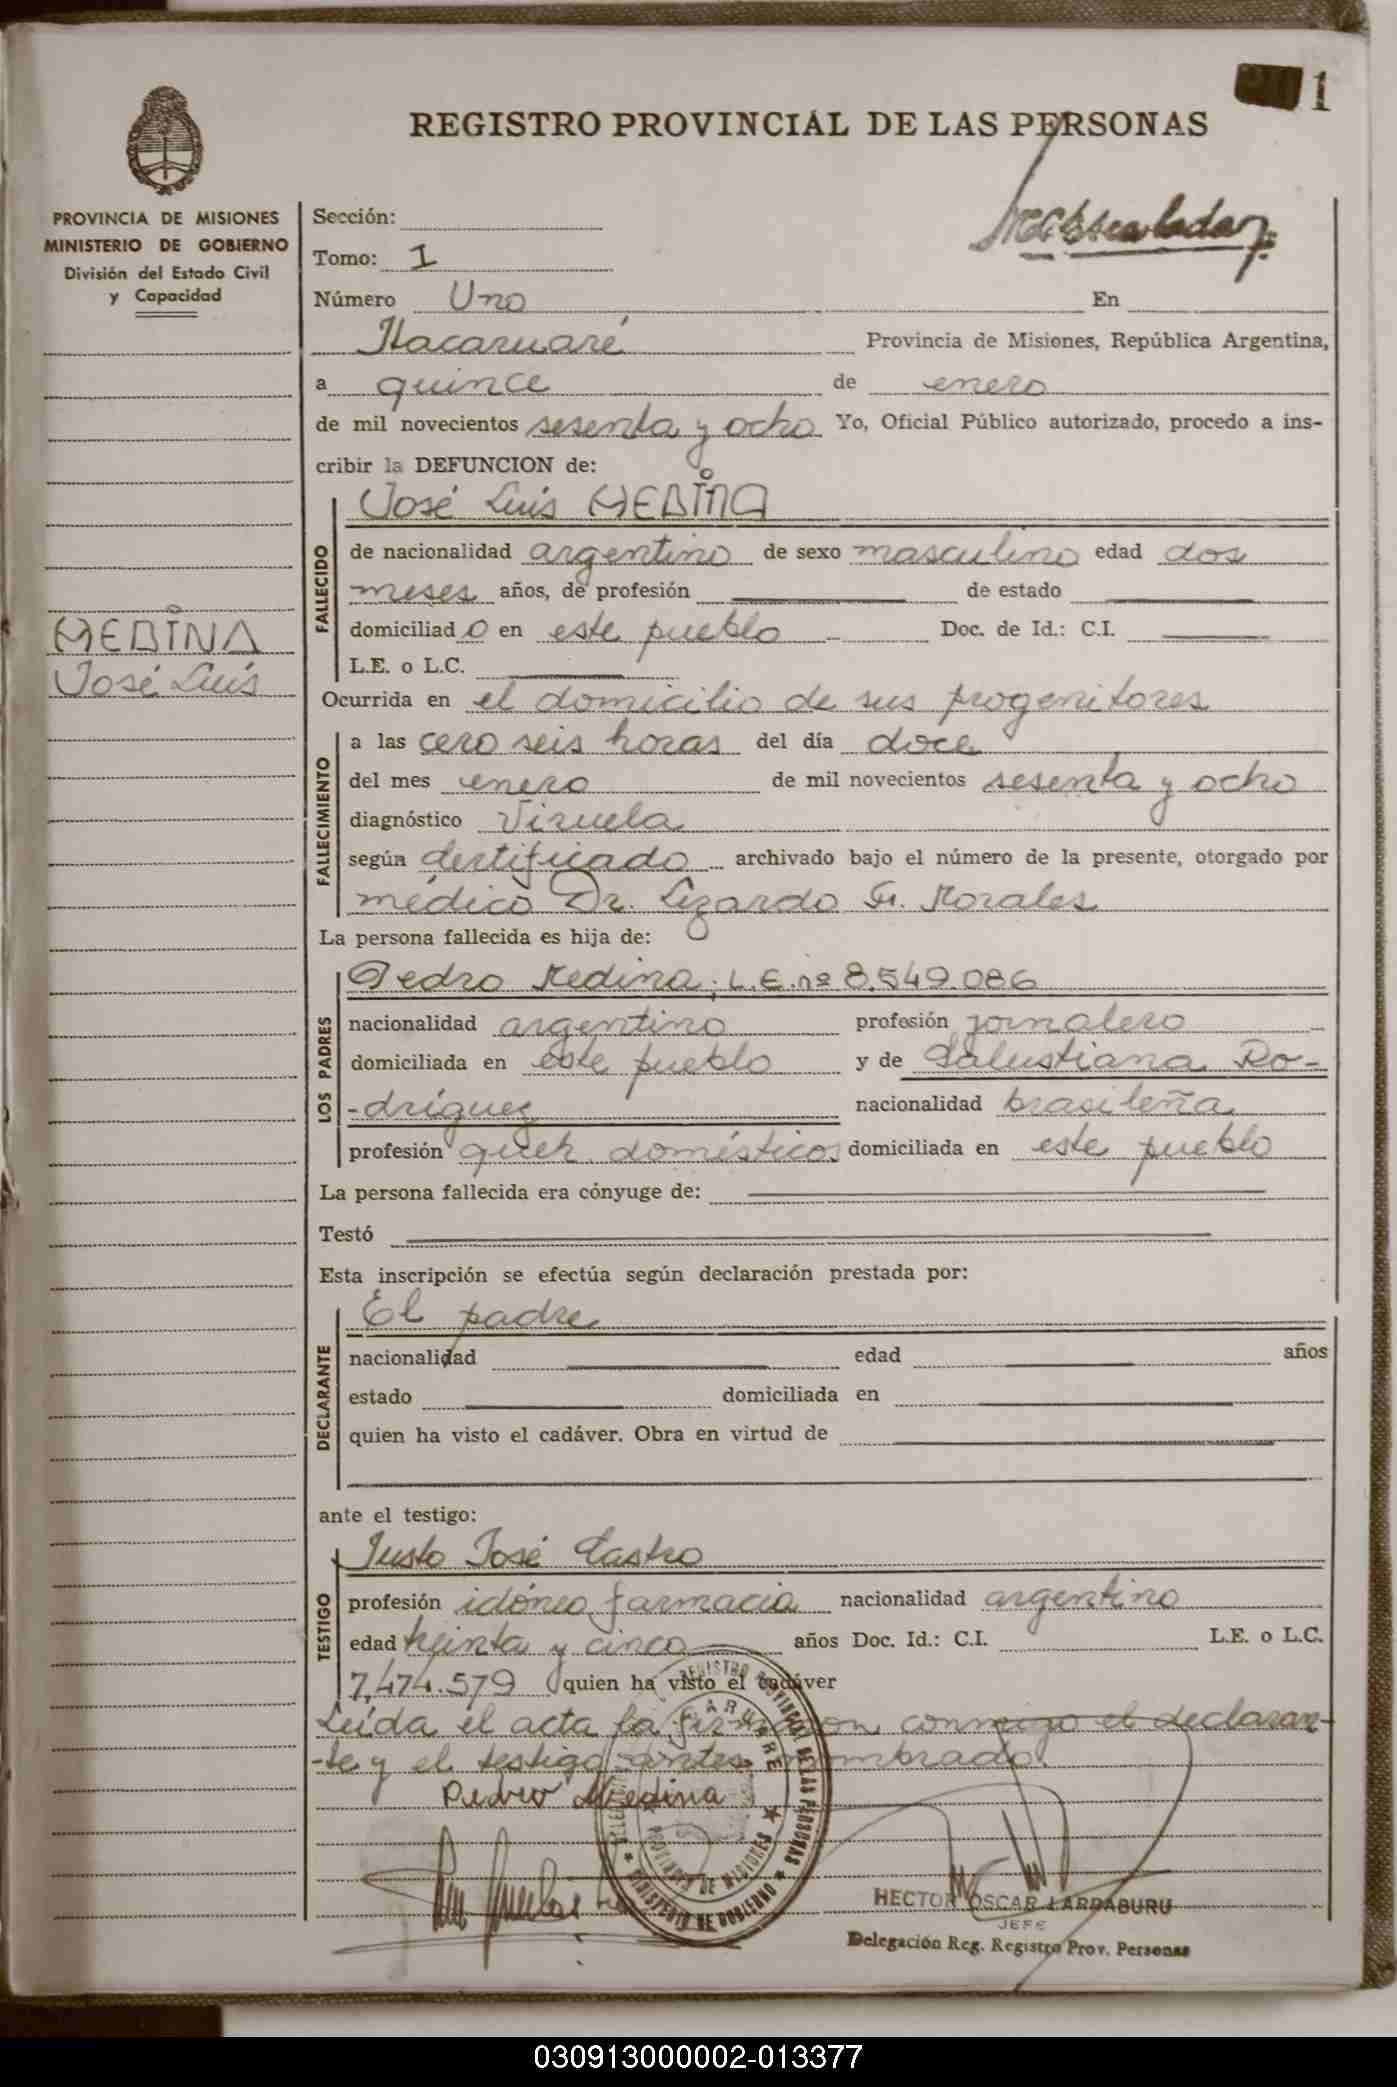 1
REGISTRO PROVINCIAL DE LAS PERSONAS
PROVINCIA DE MISIONES
MINISTERIO DE GOBIERNO
División del Estado Civil
y Capacidad
MEDINA
José Luís
Sección:
Tomo: 1
Número Uno En
Itacaruaré Provincia de Misiones, República Argentina,
a quince de enero
de mil novecientos sesenta y ocho Yo, Oficial Público autorizado, procedo a ins-
cribir la DEFUNCION de:
FALLECIDO
José Luís MEDINA
de nacionalidad argentino de sexo masculino edad dos
meses años, de profesión de estado
domiciliado en este pueblo Doc. de Id.: C.I.
L.E. o L.C.
Ocurrida en el domicilio de sus progenitores
FALLECIMIENTO
a las cero seis horas del día doce
del mes enero de mil novecientos sesenta y ocho
diagnóstico Viruela
según certificado archivado bajo el número de la presente, otorgado por
médico Dr. Lizardo Morales
La persona fallecida es hija de:
LOS PADRES
Pedro Medina; L.E. nº 8.549.086
nacionalidad argentino profesión jornalero
domiciliada en este pueblo y de Salustiana Ro-
-dríguez nacionalidad brasileña
profesión queh. domésticos domiciliada en este pueblo
La persona fallecida era cónyuge de:
Testó
Esta inscripción se efectúa según declaración prestada por:
DECLARANTE
El padre
nacionalidad edad años
estado domiciliada en
quien ha visto el cadáver. Obra en virtud de
ante el testigo:
TESTIGO
Justo José Castro
profesión idóneo farmacia nacionalidad argentino
edad treinta y cinco años Doc. Id.: C.I. L.E. o L.C.
7.474.579 quien ha visto el cadáver
Leída el acta la firman conmigo el declaran-
-te y el testigo antes nombrado.
Pedro Medina
REGISTRO PROVINCIAL DE LAS PERSONAS
PROVINCIA DE MISIONES
MINISTERIO DE GOBIERNO
HECTOR OSCAR LARRABURU
JEFE
Delegación Reg. Registro Prov. Personas
030913000002-013377